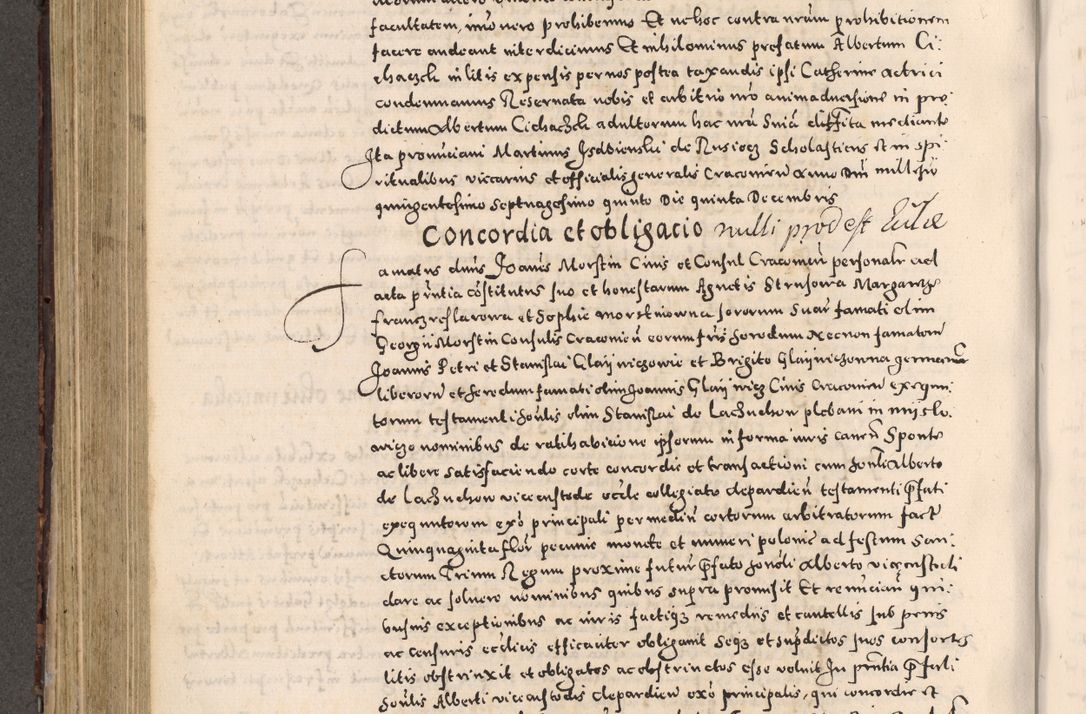 facultatem, imo vero prohibemus Et ne hoc contra nram prohibitionem
facere audeant interdicimus Et nihilominus prefatum Albertum Ci-
chaczek in litis expensis per nos postea taxandis ipsi Catherine actrici
condemnamus Reservata nobis et arbitrio nro animadversione in pre
dictum Albertum Cichaczek adultorum hac nra Snia diffita mediante
Ita pronunciavi Martinus Isdbienski de Rusiecz Scholasticus et in spi
ritualibus viccarius et officialis generalis Cracovien Anno Dni millesio
quingentesimo septuagesimo quinto Die quinta Decembris
Concordia et obligacio nulli prodest
Famatus dnus Joanes Morstin Civis et Consul Cracovien personalr ad
acta pntia costitutus suo et honestarum Agnetis Strusowa Margarethe
et Sophie Morstinowna sororum suar famati olim
Georgii Morstin Consulis Cracovien eorum fris heredum Necnon famatorum
Joannis Petri et Stanislai et Brigite germanar
liberorum et heredum famati olim Joannis Civis Cracovien exequu-
torum testamenti honlis olim Stanislai de Lacznchow plebani in myslo-
wicze nominibus de ratihabicione ipsorum in forma iuris caven Sponte
ac libere satisfaciendo certe concordie et transactioni cum honli Alberto
de Lacznchow vicecustode eccle collegiate Clepardien testamenti pfati
exequutorem exo principali per medium certorum arbitratorum fact
Quinquaginta flor pecunie monete et numeri polonic ad festum San-
ctorum Trium Regum proxime futur pfato honoli Alberto vicecustodi
dare ac solvere nominibus quibus supra promisit Et renuncian qui-
busvis exceptionibus ac iuris factiqz remediis et cautellis sub penis
ac censuris ecclicis efficaciter obligavit Seqz et supdictos suos consortes
litis obstrinxit et obligatos ac obstrinctos esse voluit In pntia pfati
honlis Alberti vicecustodis Clepardien exo principalis, qui concordie et